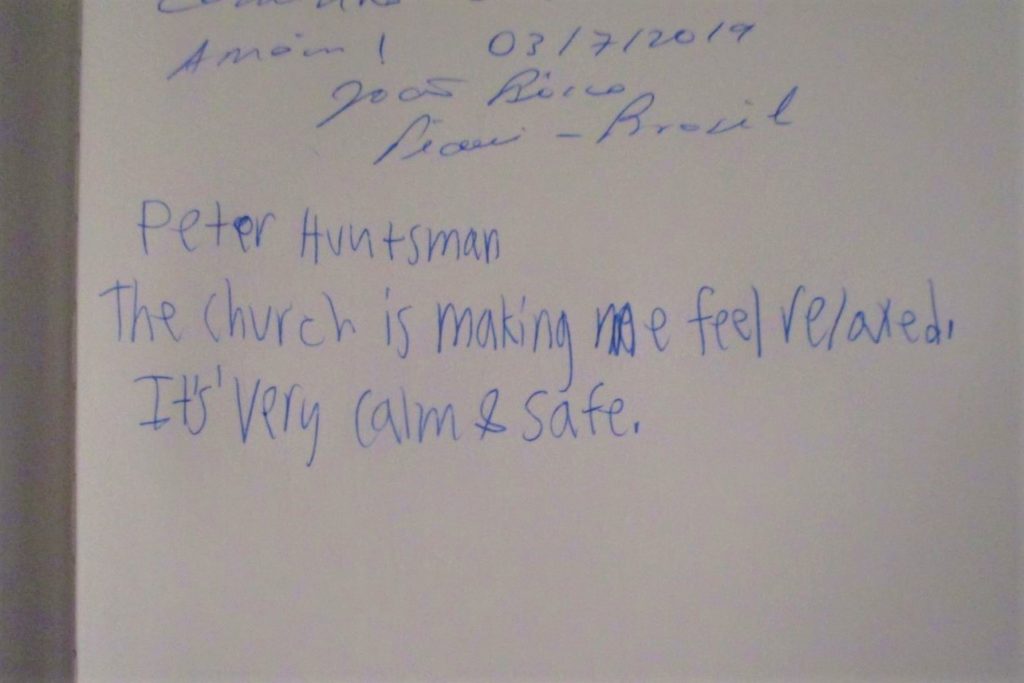 Amém! 03/7/2019
João Bosco
Piauí - Brasil
Peter Huntsman
The church is making me feel relaxed.
It's very calm & safe.